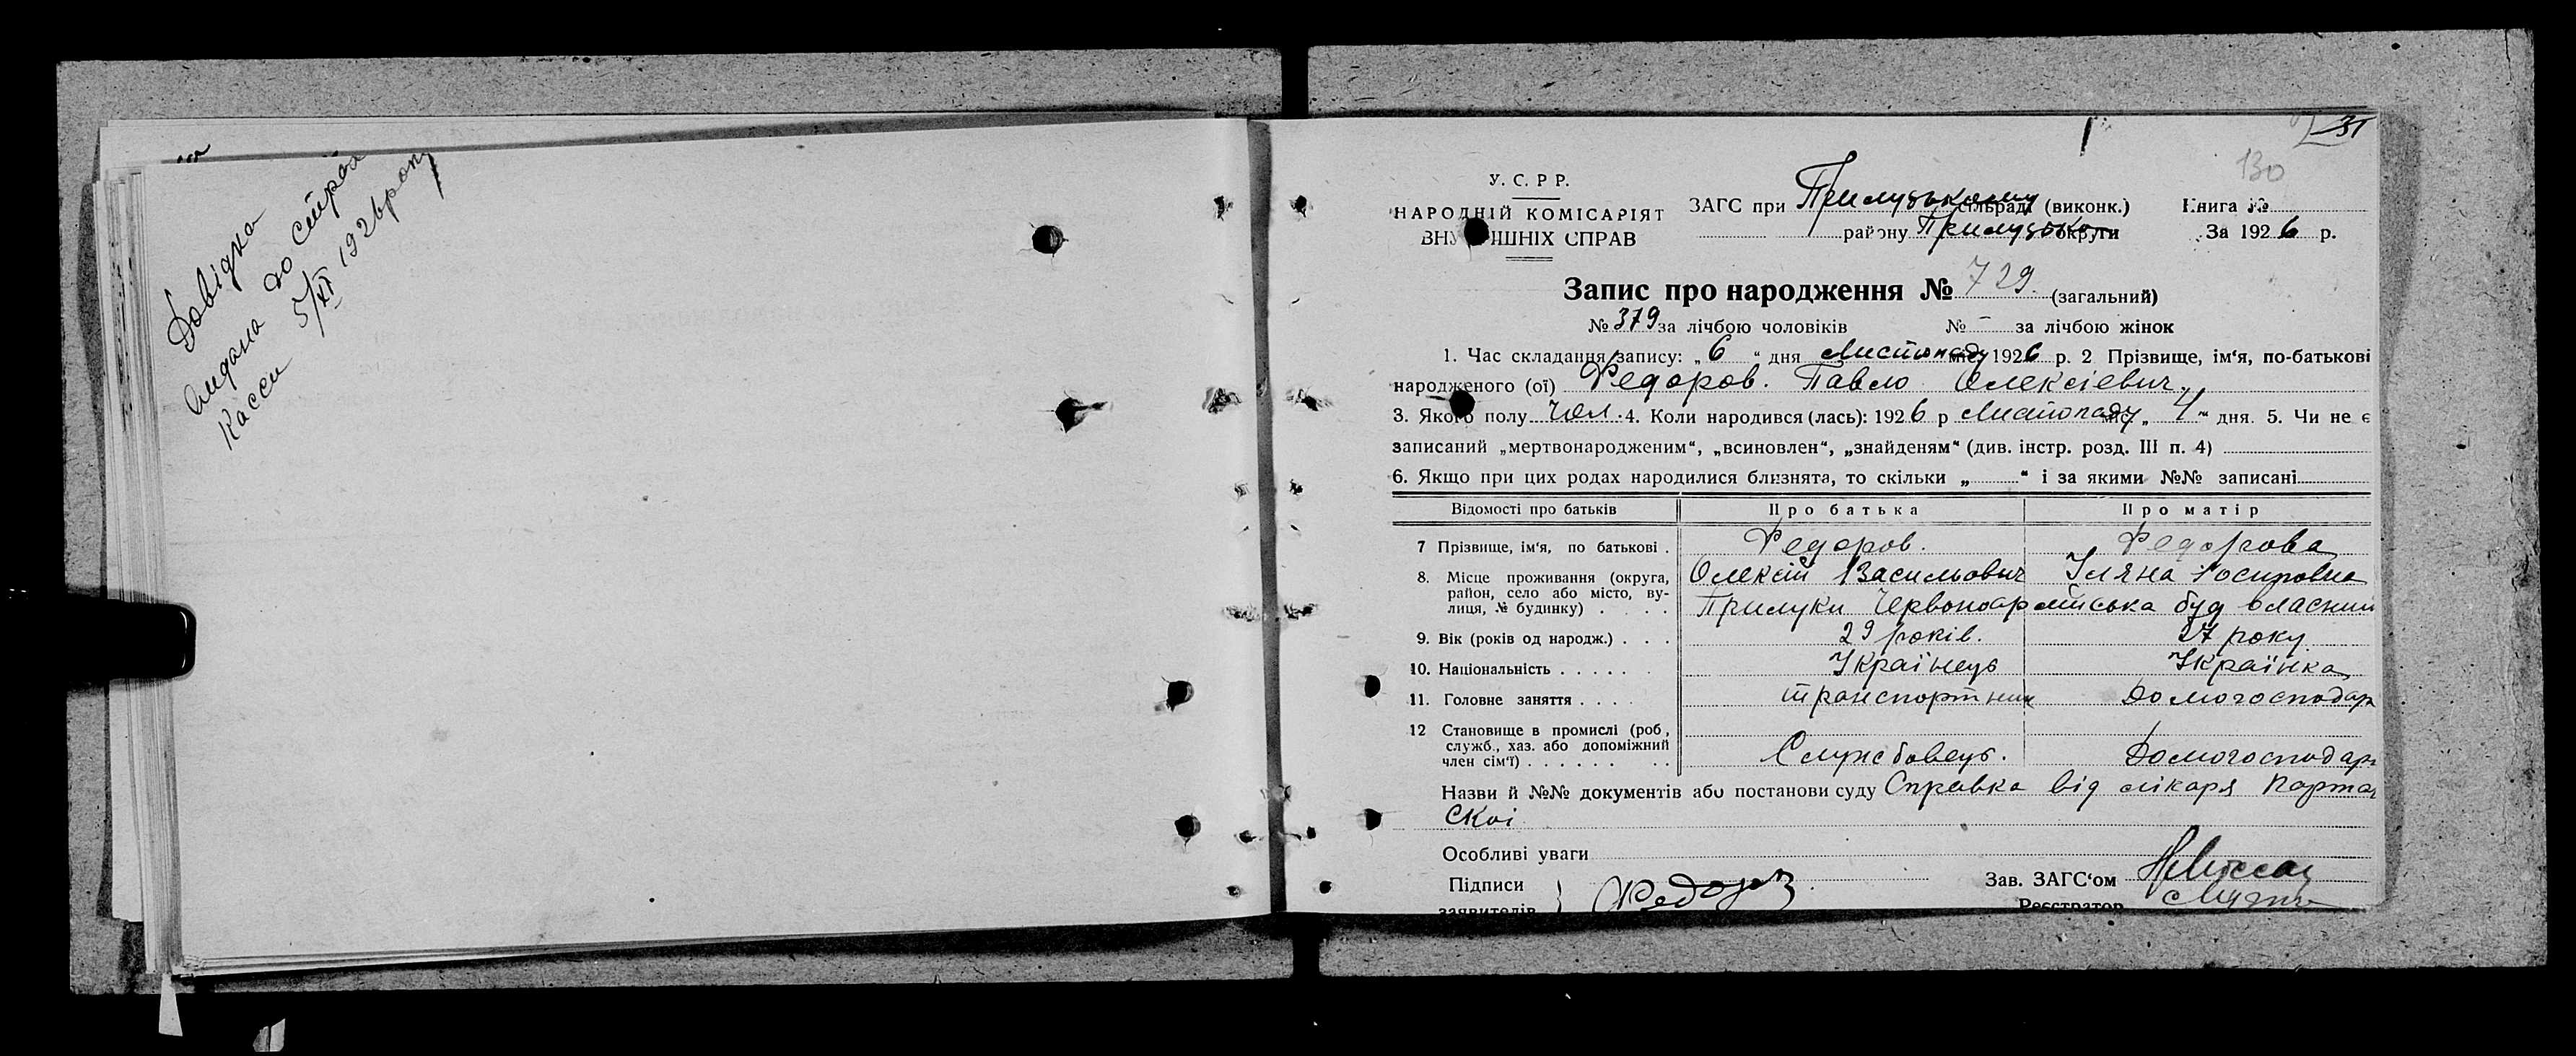 Довідка
видана до страх
Касси 5/XI 1926 року
31
130
У. С. Р Р.
НАРОДНІЙ КОМІСАРІЯТ
ВНУТРІШНІХ СПРАВ
ЗАГС при Прилуцькому сільраді (виконк.)
району Прилуцької округи
Книга №
За 1926 р.
Запис про народження № 729. (загальний)
№ 379 за лічбою чоловіків № — за лічбою жінок
1. Час складання запису: „ 6 “ дня Листопаду міс. 1926 р. 2 Прізвище, ім‘я, по-батькові
народженого (ої) Федоров. Павло Олексієвич.
3. Якого полу чол. 4. Коли народився (лась): 1926 р Листопаду міс. „ 4 “ дня. 5. Чи не є
записаний „мертвонародженим“, „всиновлен“, „знайденям“ (див. інстр. розд. III п. 4)
6. Якщо при цих родах народилися близнята, то скільки „ “ і за якими №№ записані
Відомості про батьків Про батька Про матір
7 Прізвище, ім‘я, по батькові . Федоров. Федорова
Олексій Васильович Уляна Йосиповна
8. Місце проживання (округа,
район, село або місто, ву-
лиця, № будинку) . . . . Прилуки Червоноармійська буд власний
9. Вік (років од народж.) . . . 29 років. 27 року
10. Національність . . . . . . Українець Українка
11. Головне заняття . . . . транспортник Домогосподар
12 Становище в промислі (роб.,
служб., хаз. або допоміжний
член сім‘ї) . . . . . . . . Службовець. Домогосподар
Назви й №№ документів або постанови суду Справка від лікаря
скоі
Особливі уваги
Підписи
заявителів } Федоров
Зав. ЗАГС‘ом
Реєстратор